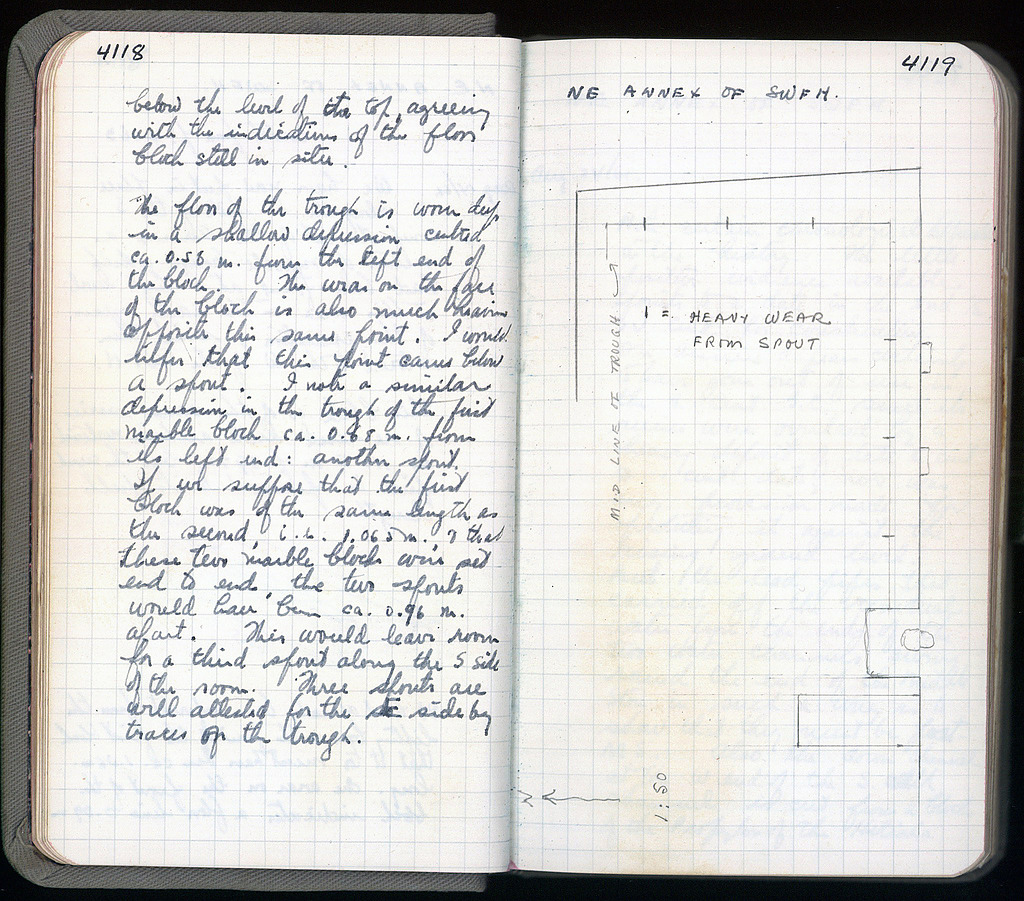 4118
below the level of the top, agreeing
with the indications of the floor
block still in situ.
The floor of the trough is worn deep
in a shallow depression centred
ca. 0.58 m. from the left end of
the block. The wear on the face
of the block is also much heavier
opposite this same point. I would
infer that this point came below
a spout. I note a similar
depression in the trough of the first
marble block ca. 0.68 m. from
its left end: another spout.
If we suppose that the first
block was of the same length as
the second, i.e. 1.065 m. & that
these two marble blocks were set
end to end the two spouts
would have been ca. 0.96 m.
apart. This would leave room
for a third spout along the S side
of the room. Three spouts are
well attested for the E side by
traces on the trough.
4119
NE ANNEX OF SWFH.
I = HEAVY WEAR
FROM SPOUT
MID LINE OF TROUGH
N
1:50